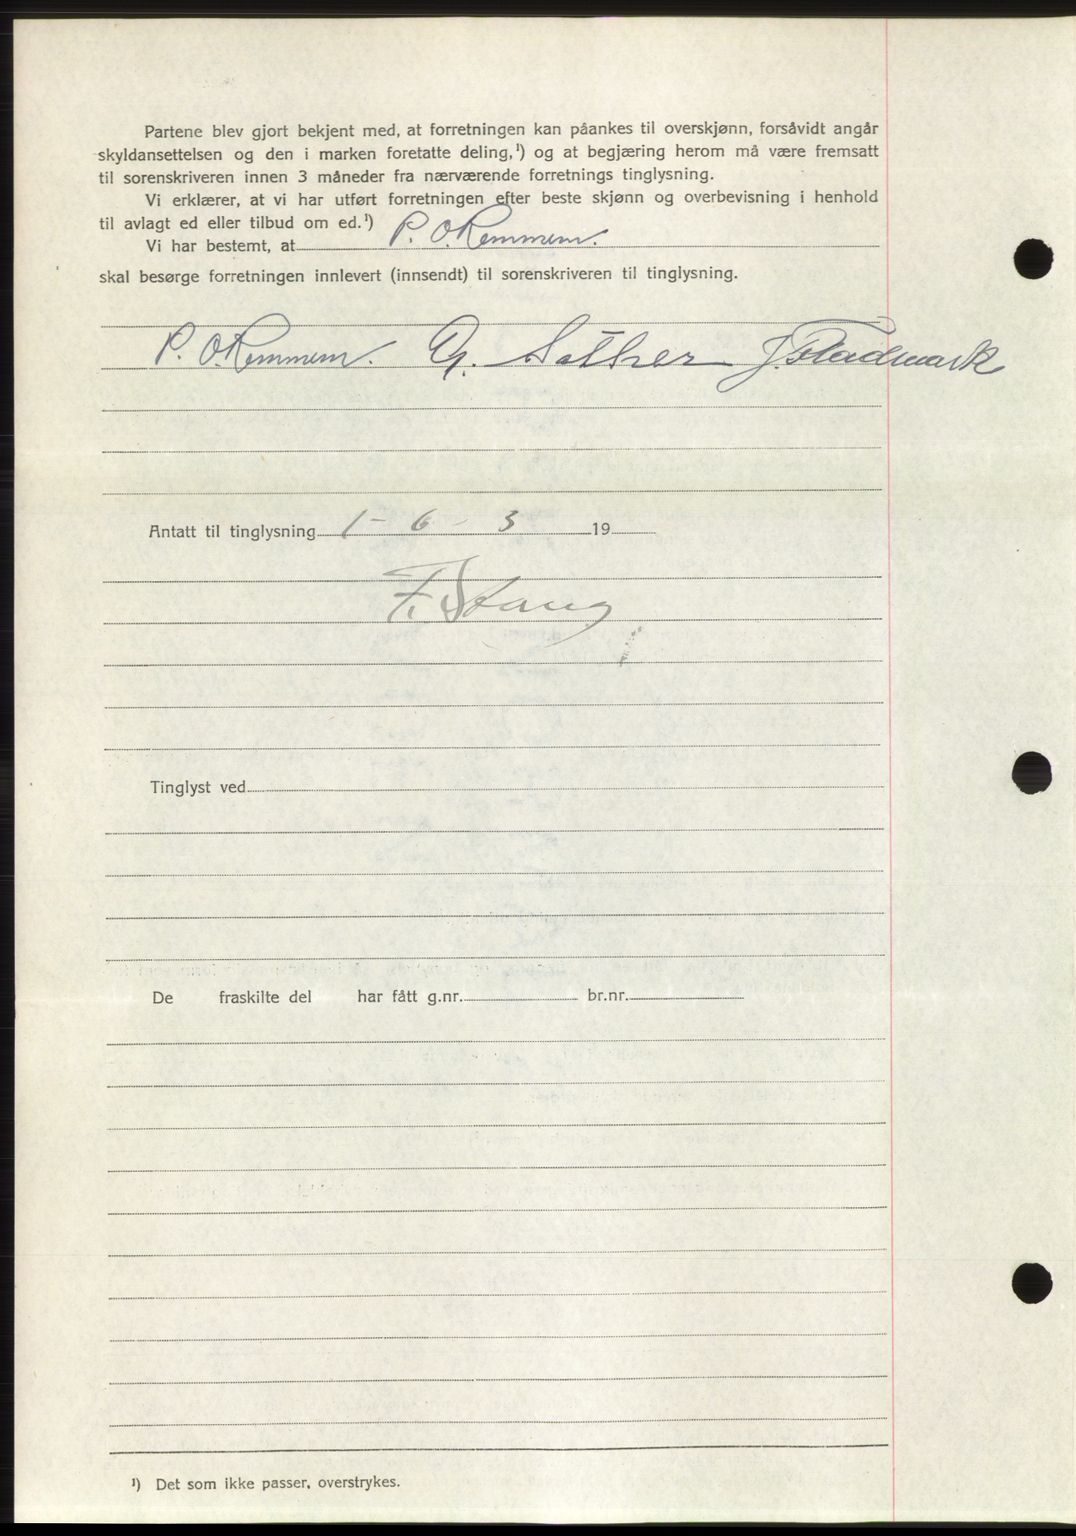 Partene blev gjort bekjent med, at forretningen kan påankes til overskjønn, forsåvidt angår
skyldansettelsen og den i marken foretatte deling,¹) og at begjæring herom må være fremsatt
til sorenskriveren innen 3 måneder fra nærværende forretnings tinglysning.
Vi erklærer, at vi har utført forretningen efter beste skjønn og overbevisning i henhold
til avlagt ed eller tilbud om ed.¹)
Vi har bestemt, at P. O. Remmem.
skal besørge forretningen innlevert (innsendt) til sorenskriveren til tinglysning.
P. O. Remmem. G. Sæther J. Fladmark
Antatt til tinglysning 1 - 6 - 3 19
F. Stang
Tinglyst ved
De fraskilte del har fått g.nr. br.nr.
¹) Det som ikke passer, overstrykes.